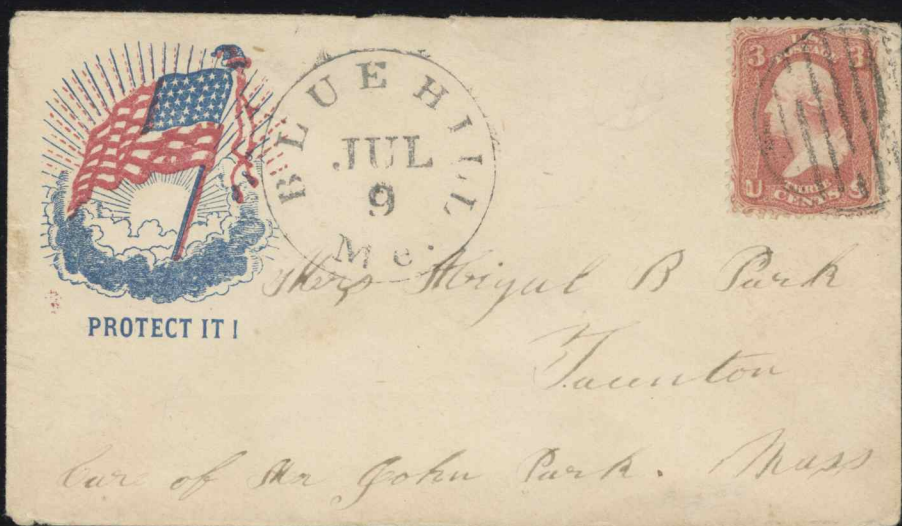 BLUE HILL
JUL
9
Me.
3 3
U THREE S
CENTS
PROTECT IT!
Mrs Abigal B Park
Taunton
Care of Mr John Park. Mass